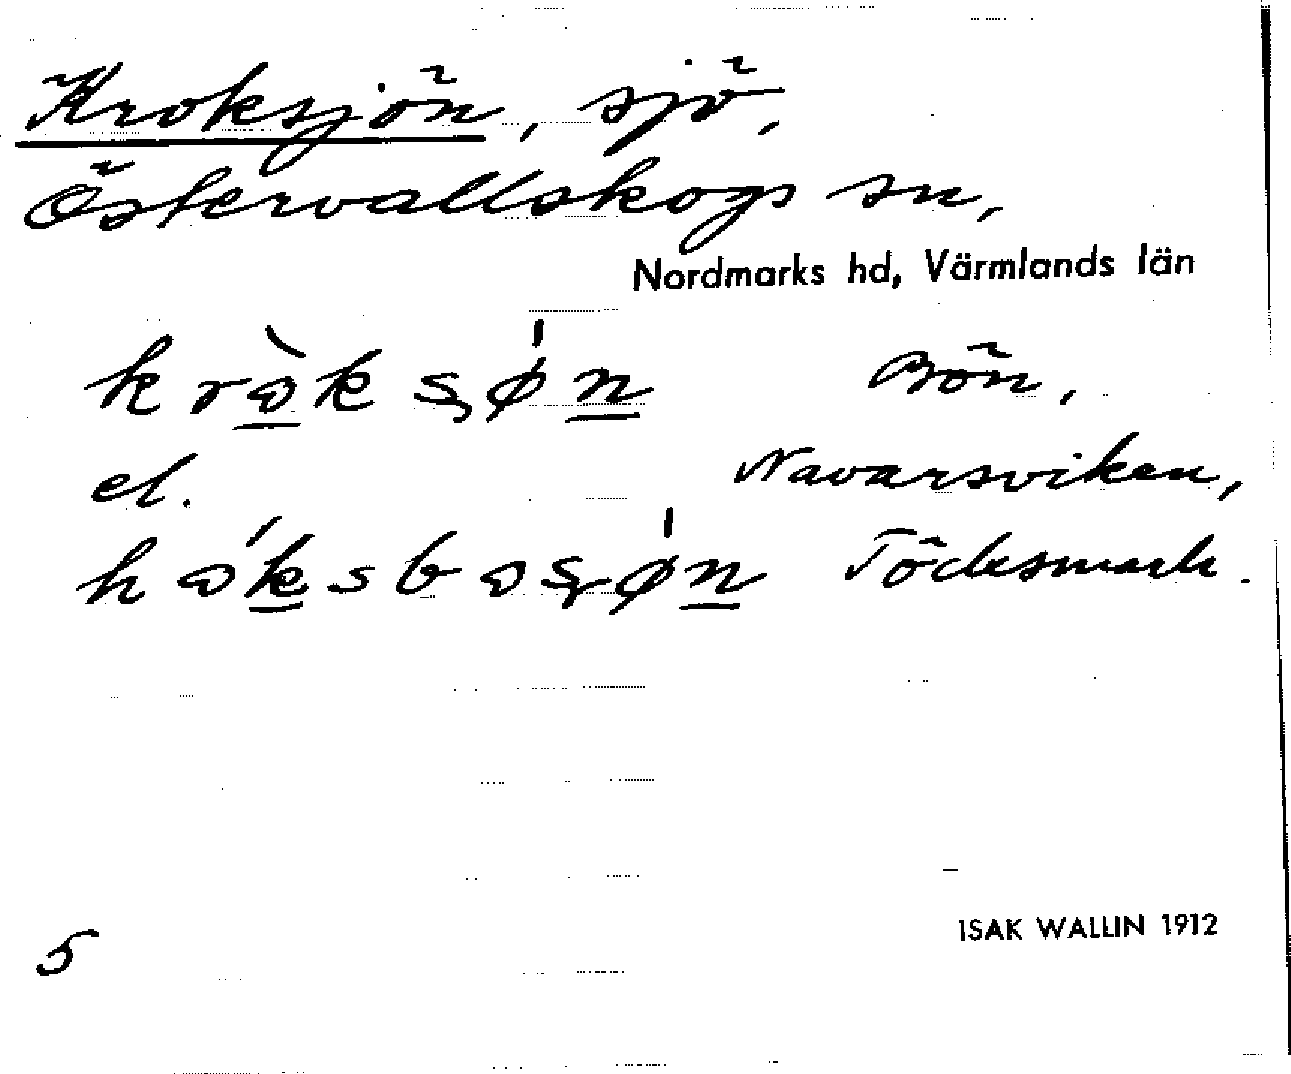 Kroksjön, sjö,
Östervallskogs sn,
Nordmarks hd, Värmlands län
Bön,
el. Navarsviken,
Töcksmark.
5
ISAK WALLIN 1912